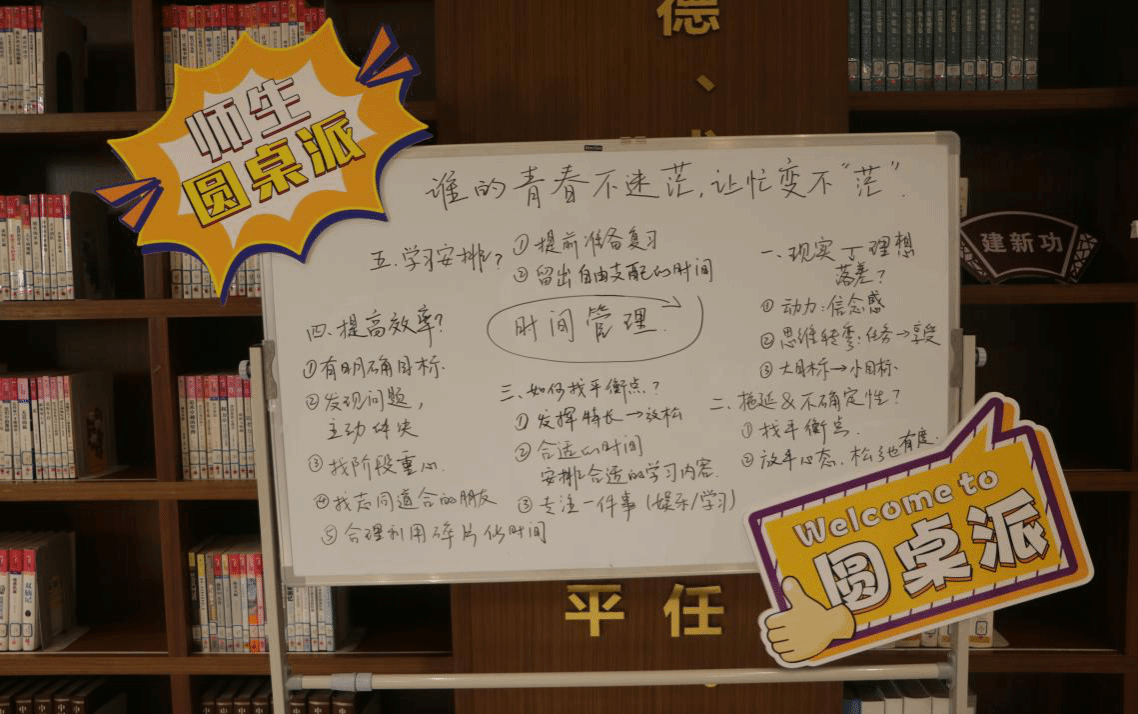 德、
师生
圆桌派
谁的青春不迷茫,让忙变不“茫”.
建新功
五.学习安排?
①提前准备复习
②留出自由支配的时间
时间管理.
一、现实丁理想
落差?
①动力:信念感
②思维转弯:任务→享受
③大目标→小目标
四.提高效率?
①有明确目标.
②发现问题,
主动解决
③找阶段重心.
④找志同道合的朋友
⑤合理利用碎片化时间
三、如何找平衡点?
①发挥特长→放松
②合适的时间
安排合适的学习内容.
③专注一件事(娱乐/学习)
二、拖延&不确定性?
①找平衡点.
②放平心态,松弛有度.
Welcome to
圆桌派
平 任
双城记